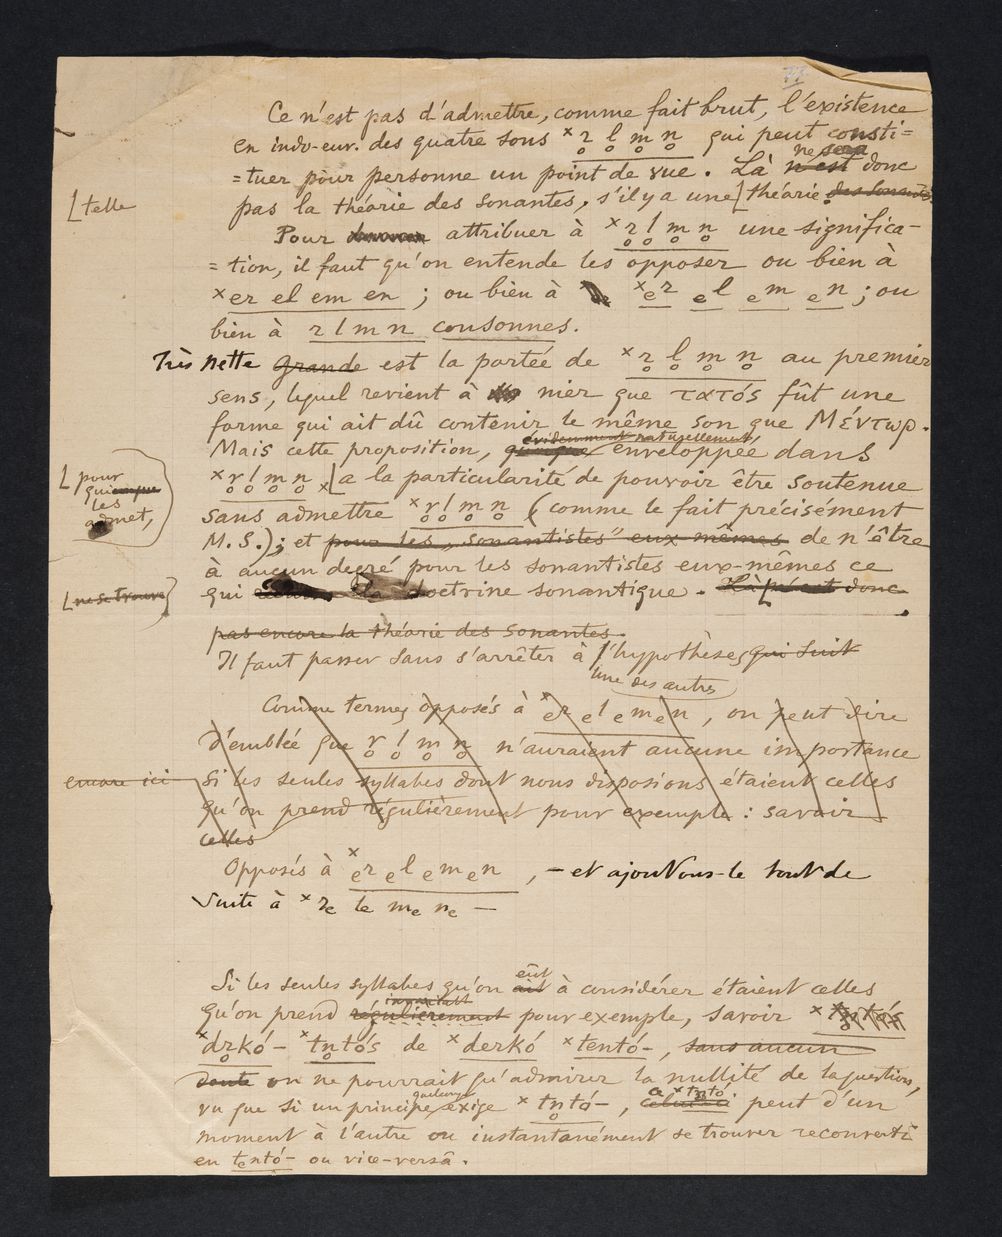 77
Ce n'est pas d'admettre, comme fait brut, l'existence
en indo-eur. des quatre sons ˣr̥ l̥ m̥ n̥ qui peut consti=
=tuer pour personne un point de vue. Là n'est ne sera donc
pas la théorie des sonantes, s'il y a une [telle théorie des sonantes.
Pour attribuer à ˣr̥ l̥ m̥ n̥ une significa-
=tion, il faut qu'on entende les opposer ou bien à
ˣer el em en ; ou bien à ˣₑr ₑl ₑm ₑn ; ou
bien à r l m n consonnes.
Très nette Grande est la portée de ˣr̥ l̥ m̥ n̥ au premier
sens, lequel revient à nier que τατός fût une
forme qui ait dû contenir le même son que Μέντωρ.
Mais cette proposition, évidemment naturellement enveloppée dans
ˣr̥ l̥ m̥ n̥ [pour qui les admet, a la particularité de pouvoir être soutenue
sans admettre ˣr̥ l̥ m̥ n̥ (comme le fait précisément
M. S.); et pour les „sonantistes" eux-mêmes de n'être
à aucun degré pour les sonantistes eux-mêmes ce
qui [ne se trouve la doctrine sonantique. Là n'est donc
pas encore la théorie des sonantes.
Il faut passer sans s'arrêter à l'hypothèse, qui suit
une des autres
Comme termes opposés à ˣₑr ₑl ₑm ₑn, on peut dire
d'emblée que r̥ l̥ m̥ n̥ n'auraient aucune importance
encore ici si les seules syllabes dont nous disposions étaient celles
qu'on prend régulièrement pour exemple : savoir
celles
Opposés à ˣₑr ₑl ₑm ₑn, – et ajoutons-le tout de
suite à ˣrₑ lₑ mₑ nₑ —
Si les seules syllabes qu'on ait eût à considérer étaient celles
qu'on prend régulièrement pour exemple, savoir ˣtn̥tós
ˣdr̥kó- ˣtn̥tós de ˣderkó ˣtentó-, sans aucun
doute on ne pourrait qu'admirer la nullité de la question,
vu que si un principe quelconque exige ˣtn̥tó-, ce ˣtn̥tó peut d'un
moment à l'autre ou instantanément se trouver reconverti
en tₑntó- ou vice-versâ.